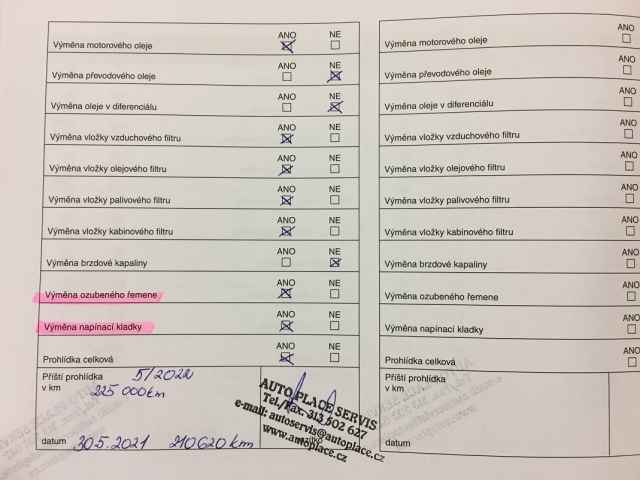 ANO NE
Výměna motorového oleje
ANO NE
Výměna převodového oleje
ANO NE
Výměna oleje v diferenciálu
ANO NE
Výměna vložky vzduchového filtru
ANO NE
Výměna vložky olejového filtru
ANO NE
Výměna vložky palivového filtru
ANO NE
Výměna vložky kabinového filtru
ANO NE
Výměna brzdové kapaliny
ANO NE
Výměna ozubeného řemene
ANO NE
Výměna napínací kladky
ANO NE
Prohlídka celková
Příští prohlídka 5/2022
v km 225 000km
datum 30.5.2021 210620 km
AUTO PLACE SERVIS
Tel./Fax: 313 502 627
e-mail: autoservis@autoplace.cz
www.autoplace.cz
ANO
Výměna motorového oleje
ANO
Výměna převodového oleje
ANO
Výměna oleje v diferenciálu
ANO
Výměna vložky vzduchového filtru
ANO
Výměna vložky olejového filtru
ANO
Výměna vložky palivového filtru
ANO
Výměna vložky kabinového filtru
ANO
Výměna brzdové kapaliny
ANO
Výměna ozubeného řemene
ANO
Výměna napínací kladky
ANO
Prohlídka celková
Příští prohlídka
v km
datum